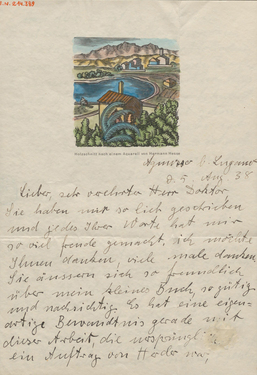 Holzschnitt nach einem Aquarell von Hermann Hesse
Agnuzzo b. Lugano
25. Aug 38
Lieber, sehr verehrter Herr Doktor,
Sie haben mir so lieb geschrieben
und jedes Ihrer Worte hat mir
so viel Freude gemacht, ich möchte
Ihnen danken, viele male danken.
Sie äussern sich so freundlich
über mein kleines Buch, so gütig
und nachsichtig. Es hat eine eigen-
artige Bewandtnis gerade mit
dieser Arbeit, die ursprüngl.
ein Auftrag von war,